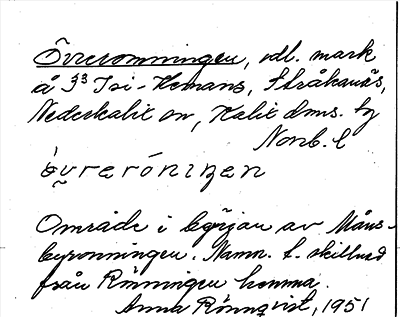 Övreromningen, odl. mark
å 3³ Isi-Hemans, Stråkanäs,
Nederkalix sn, Kalix dms. tg
Norrb. l
övreróningen
Område i början av Måns-
byronningen. Namn t. skillnad
från Rönningen hemma.
Anna Rönnqvist, 1951